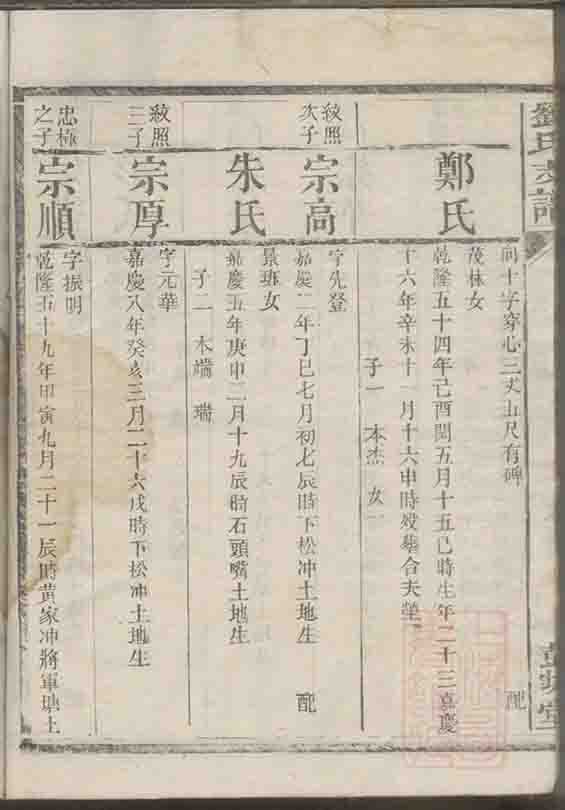 劉氏支譜
向十字穿心三丈山尺有碑
配
鄭氏
茂林女
乾隆五十四年己酉閏五月十五巳時生年二十三嘉慶
十六年辛未十一月十六申時歿墓合夫塋
子一 本杰 女一
紋照
次子
宗高
字先登
嘉慶二年丁巳七月初七辰時下松冲土地生
配
朱氏
景班女
嘉慶五年庚申二月十九辰時石頭嘴土地生
子二 本端 瑞
紋照
三子
宗厚
字元華
嘉慶八年癸亥三月二十六戌時下松冲土地生
忠極
之子
宗順
字振明
乾隆五十九年甲寅九月二十一辰時黄家冲將軍塘土